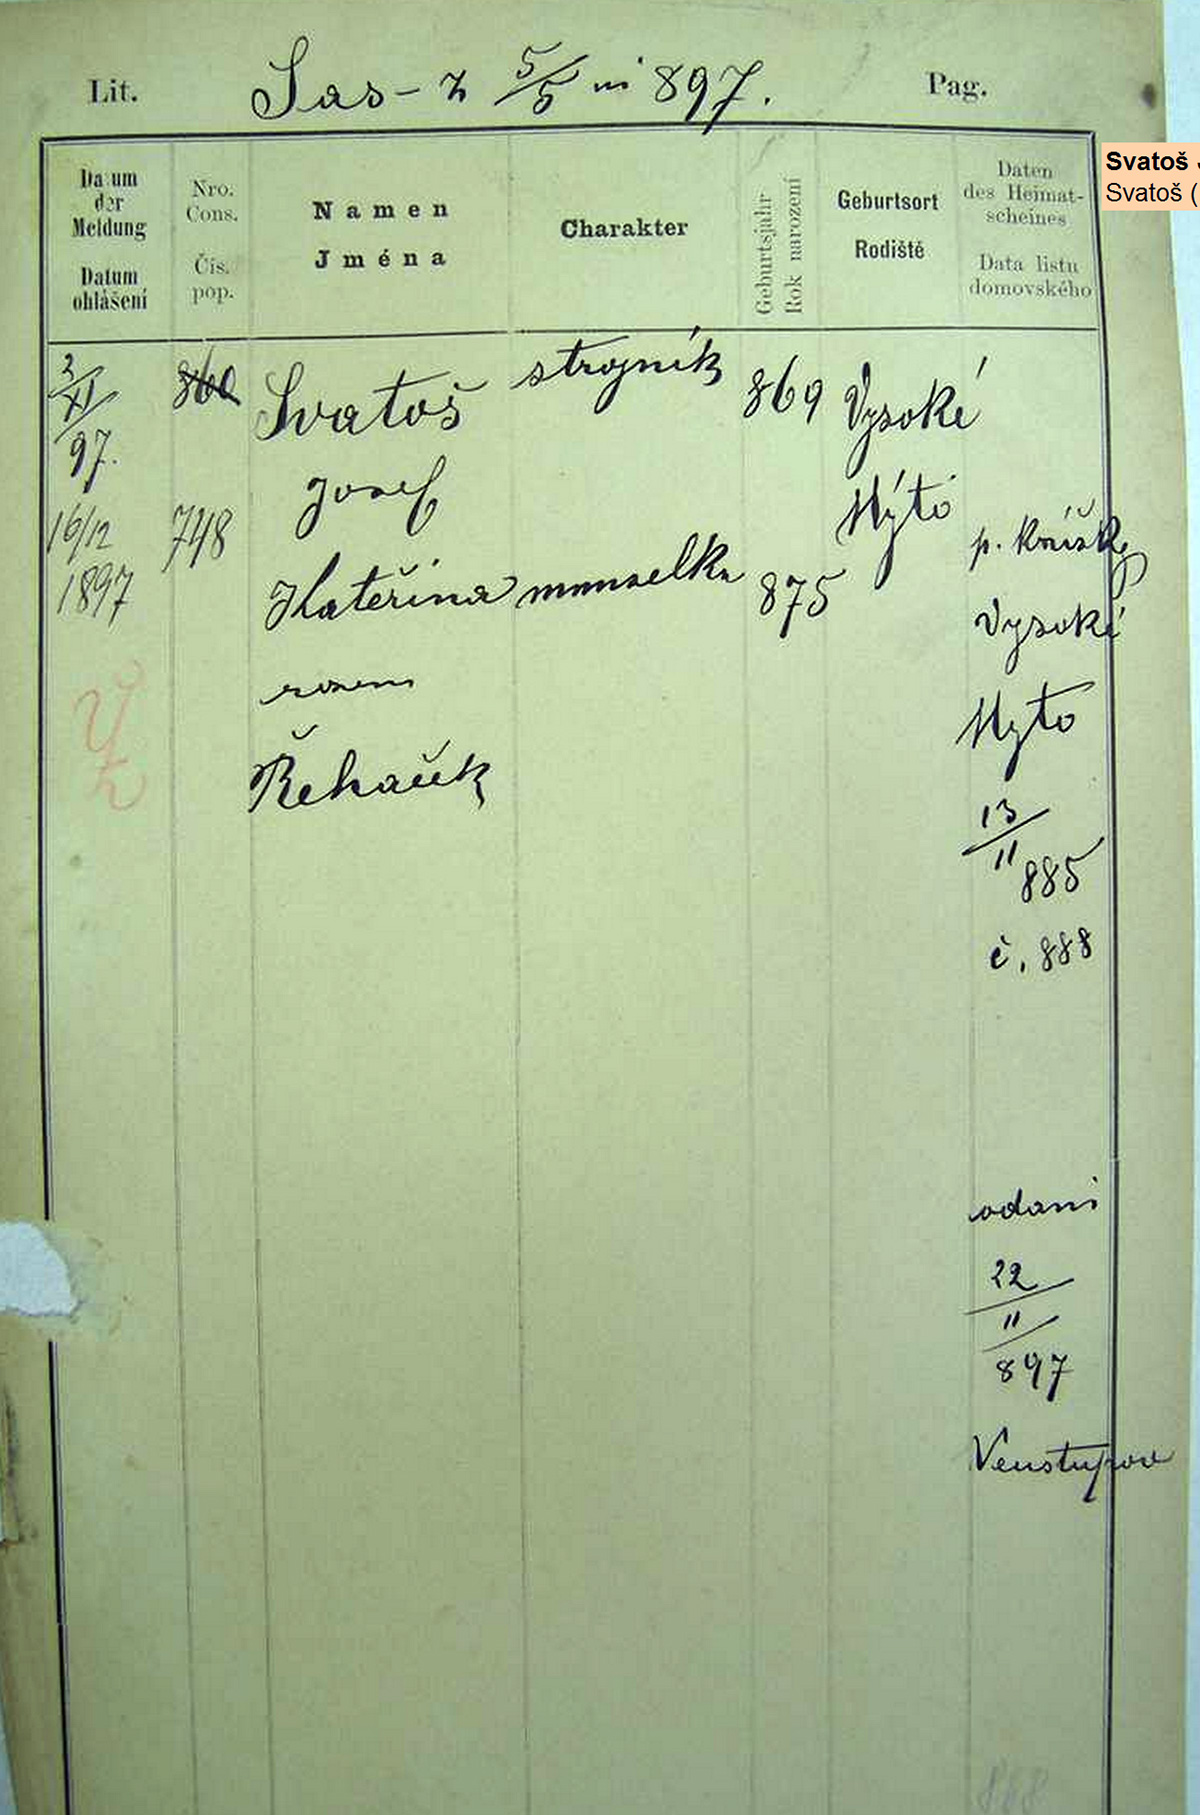 Lit. Sas - z 5/5 897. Pag.
Svatoš
Svatoš (
Datum
der
Meldung
Datum
ohlášení
Nro.
Cons.
Čís.
pop.
Namen
Jména
Charakter
Geburtsjahr
Rok narození
Geburtsort
Rodiště
Daten
des Heimat-
scheines
Data listu
domovského
2/XI 860 Svatoš strojník 869 Vysoké
97.
Josef Mýto
16/12 748 p.
1897 Kateřina manželka 875 Vysoké
rozen
Mýto
Řehaček
13/11
885
č. 888
odani
22
11
897